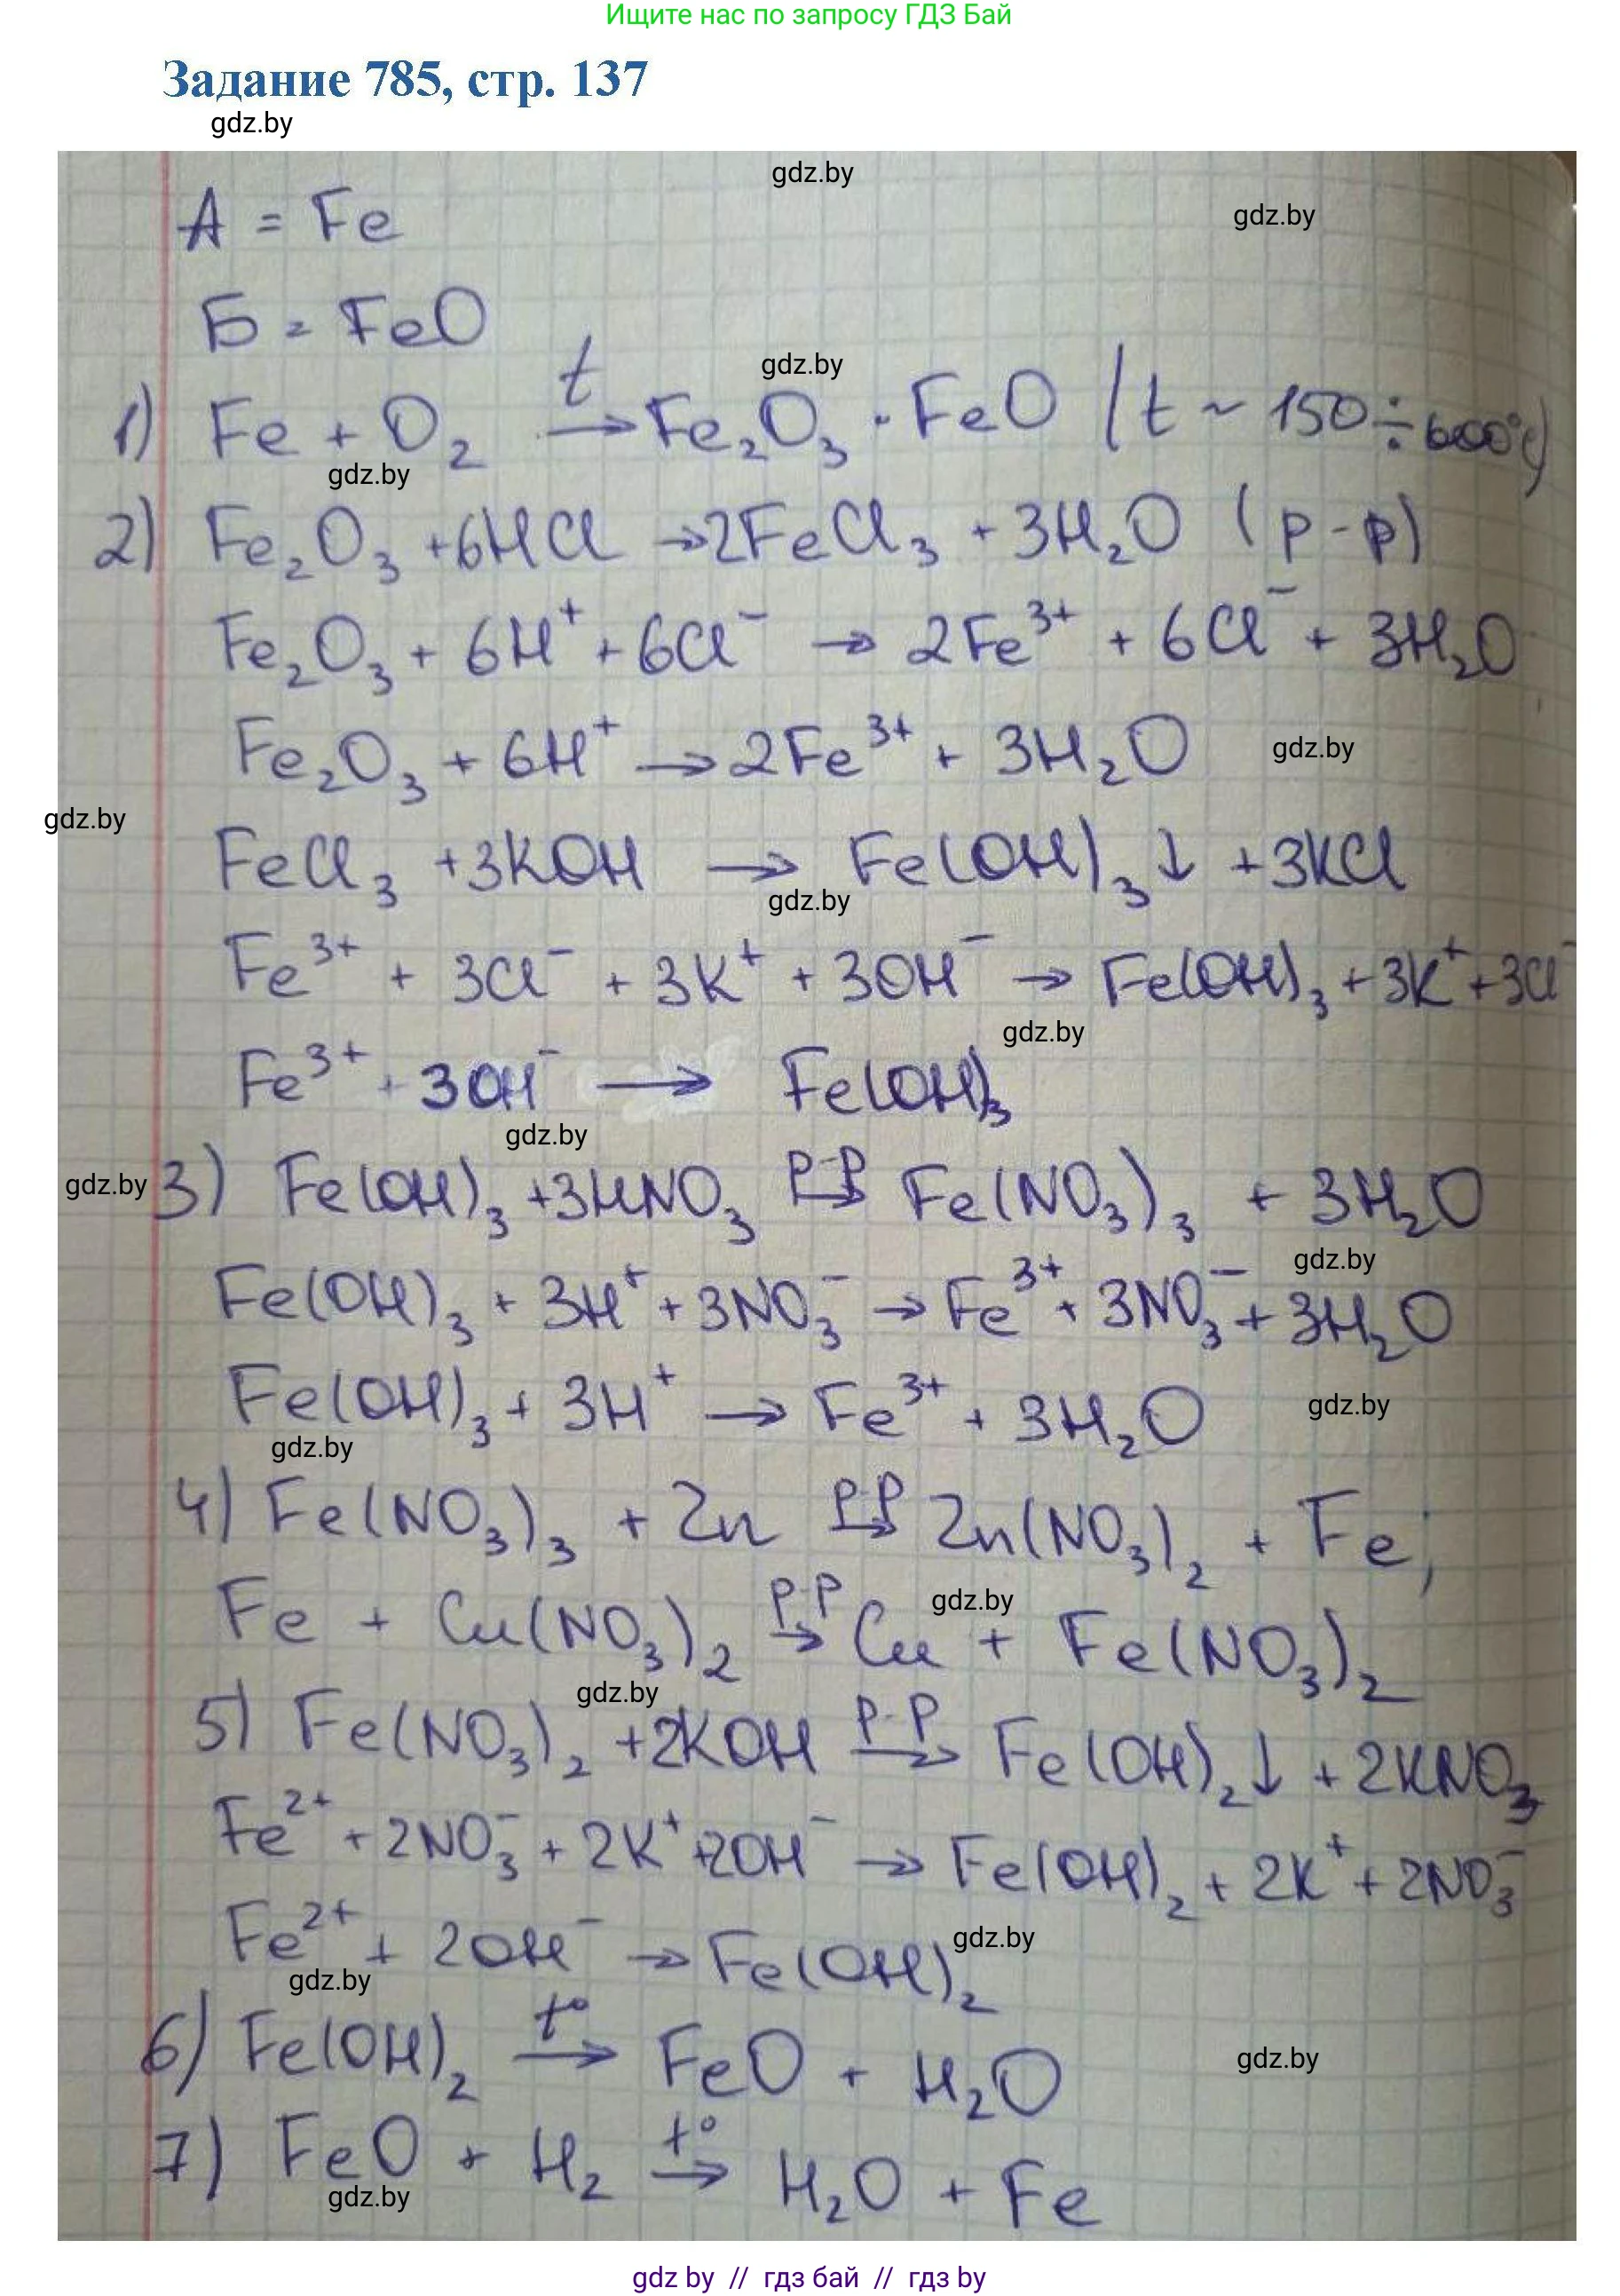 Ищите нас по запросу ГДЗ Бай
Задание 785, стр. 137
gdz.by
gdz.by
gdz.by
A = Fe
Б = FeO
gdz.by
1) Fe + O₂ →(t) Fe₂O₃ · FeO (t ~ 150 ÷ 600°C)
gdz.by
2) Fe₂O₃ + 6HCl → 2FeCl₃ + 3H₂O (р-р)
Fe₂O₃ + 6H⁺ + 6Cl⁻ → 2Fe³⁺ + 6Cl⁻ + 3H₂O
Fe₂O₃ + 6H⁺ → 2Fe³⁺ + 3H₂O
gdz.by
gdz.by
FeCl₃ + 3KOH → Fe(OH)₃↓ + 3KCl
gdz.by
Fe³⁺ + 3Cl⁻ + 3K⁺ + 3OH⁻ → Fe(OH)₃ + 3K⁺ + 3Cl⁻
gdz.by
Fe³⁺ + 3OH⁻ → Fe(OH)₃
gdz.by
gdz.by
3) Fe(OH)₃ + 3HNO₃ →(р-р) Fe(NO₃)₃ + 3H₂O
gdz.by
Fe(OH)₃ + 3H⁺ + 3NO₃⁻ → Fe³⁺ + 3NO₃⁻ + 3H₂O
Fe(OH)₃ + 3H⁺ → Fe³⁺ + 3H₂O
gdz.by
gdz.by
4) Fe(NO₃)₃ + Zn →(р-р) Zn(NO₃)₂ + Fe;
gdz.by
Fe + Cu(NO₃)₂ →(р-р) Cu + Fe(NO₃)₂
gdz.by
5) Fe(NO₃)₂ + 2KOH →(р-р) Fe(OH)₂↓ + 2KNO₃
Fe²⁺ + 2NO₃⁻ + 2K⁺ + 2OH⁻ → Fe(OH)₂ + 2K⁺ + 2NO₃⁻
gdz.by
Fe²⁺ + 2OH⁻ → Fe(OH)₂
gdz.by
6) Fe(OH)₂ →(t°) FeO + H₂O
gdz.by
7) FeO + H₂ →(t°) H₂O + Fe
gdz.by
gdz by // гдз бай // gdz by